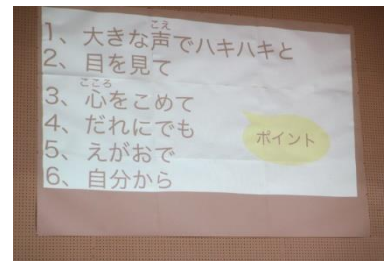 1、大きな声でハキハキと
こえ
2、目を見て
3、心をこめて
こころ
4、だれにでも
5、えがおで
6、自分から
ポイント